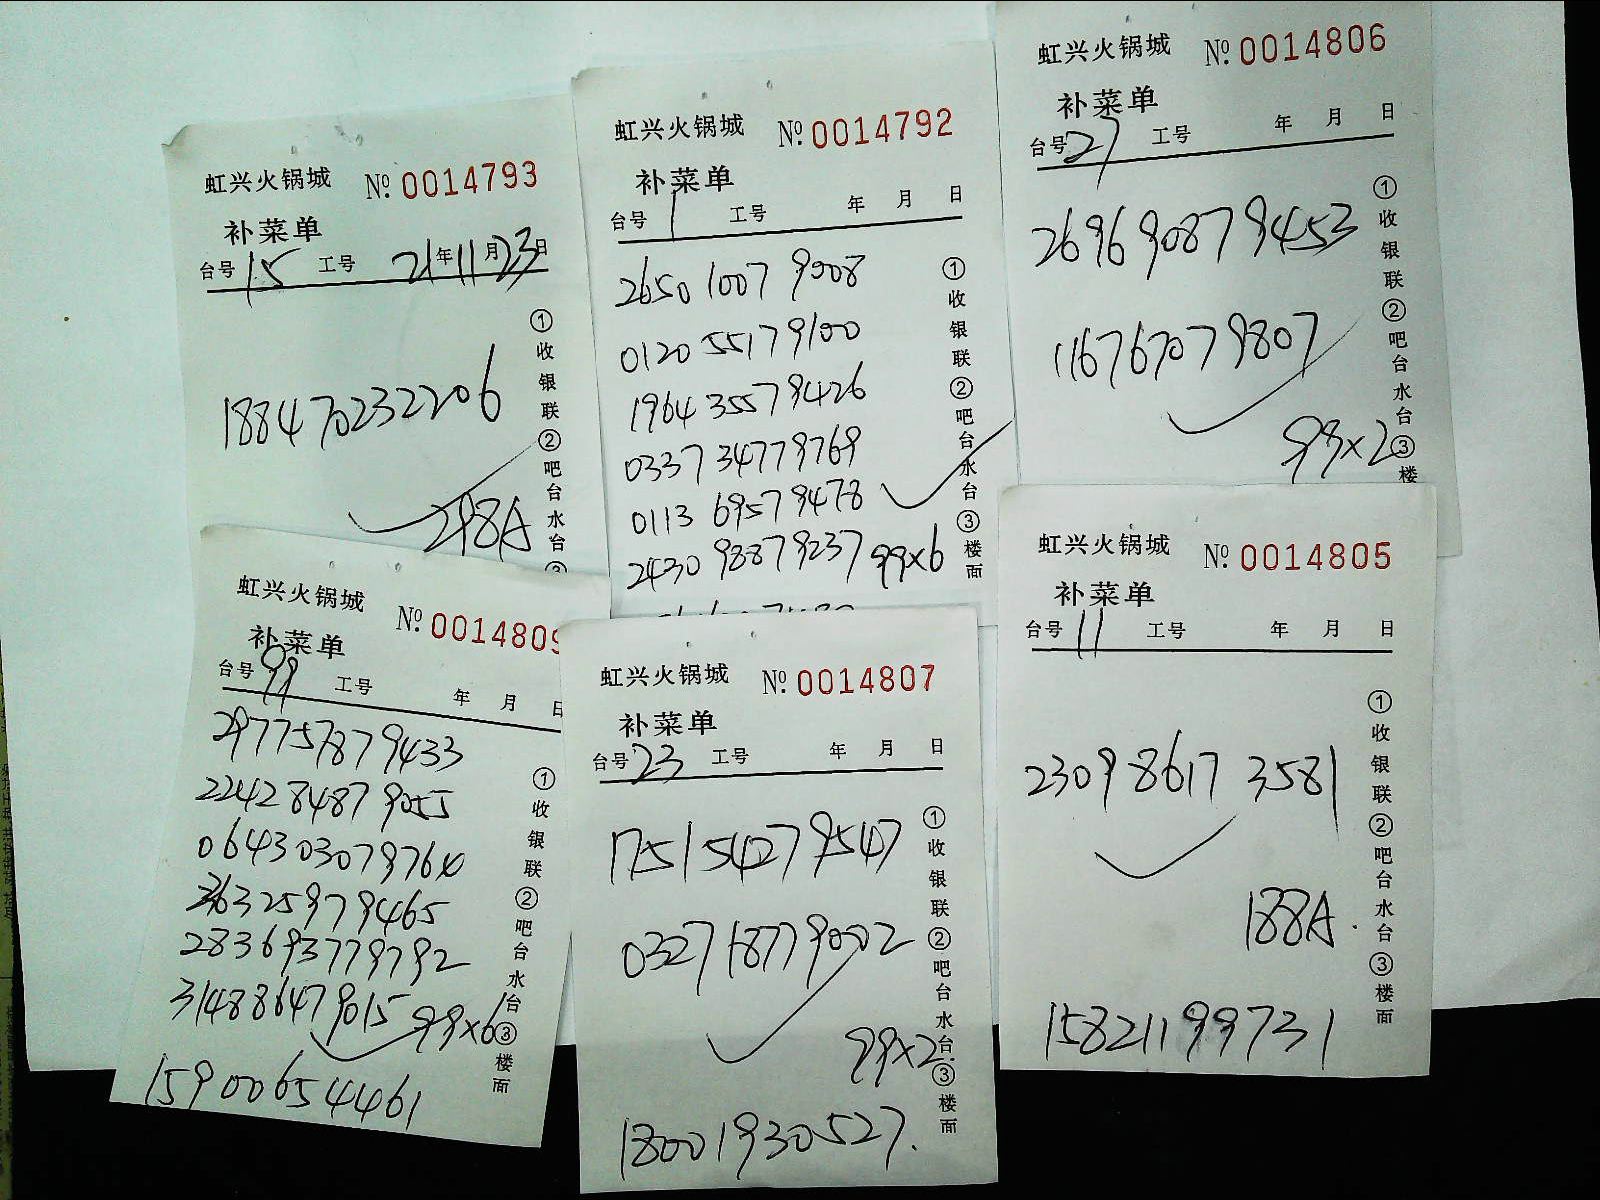 虹兴火锅城 №0014793
补菜单
台号15 工号 21年11月23日
188470232206
298A
①收银联②吧台水台③
虹兴火锅城 №0014792
补菜单
台号1 工号 年 月 日
2650 1007 9008
0120 5517 9100
1964 3557 9426
0337 3477 9769
0113 6957 9478
2430 9887 9237 99×6
①收银联②吧台水台③楼面
虹兴火锅城 №0014806
补菜单
台号27 工号 年 月 日
2696 9087 9453
1167 6707 9807
99×2
①收银联②吧台水台③楼
虹兴火锅城 №0014809
补菜单
台号99 工号 年 月 日
297757879433
224284879055
064303079764
363259779465
283693779792
314886479015 99×6
15900654461
①收银联②吧台水台③楼面
虹兴火锅城 №0014807
补菜单
台号23 工号 年 月 日
175154279547
032718779002
99×2
18001930527.
①收银联②吧台水台③楼面
虹兴火锅城 №0014805
补菜单
台号11 工号 年 月 日
23098617 3581
188A.
15821199731
①收银联②吧台水台③楼面